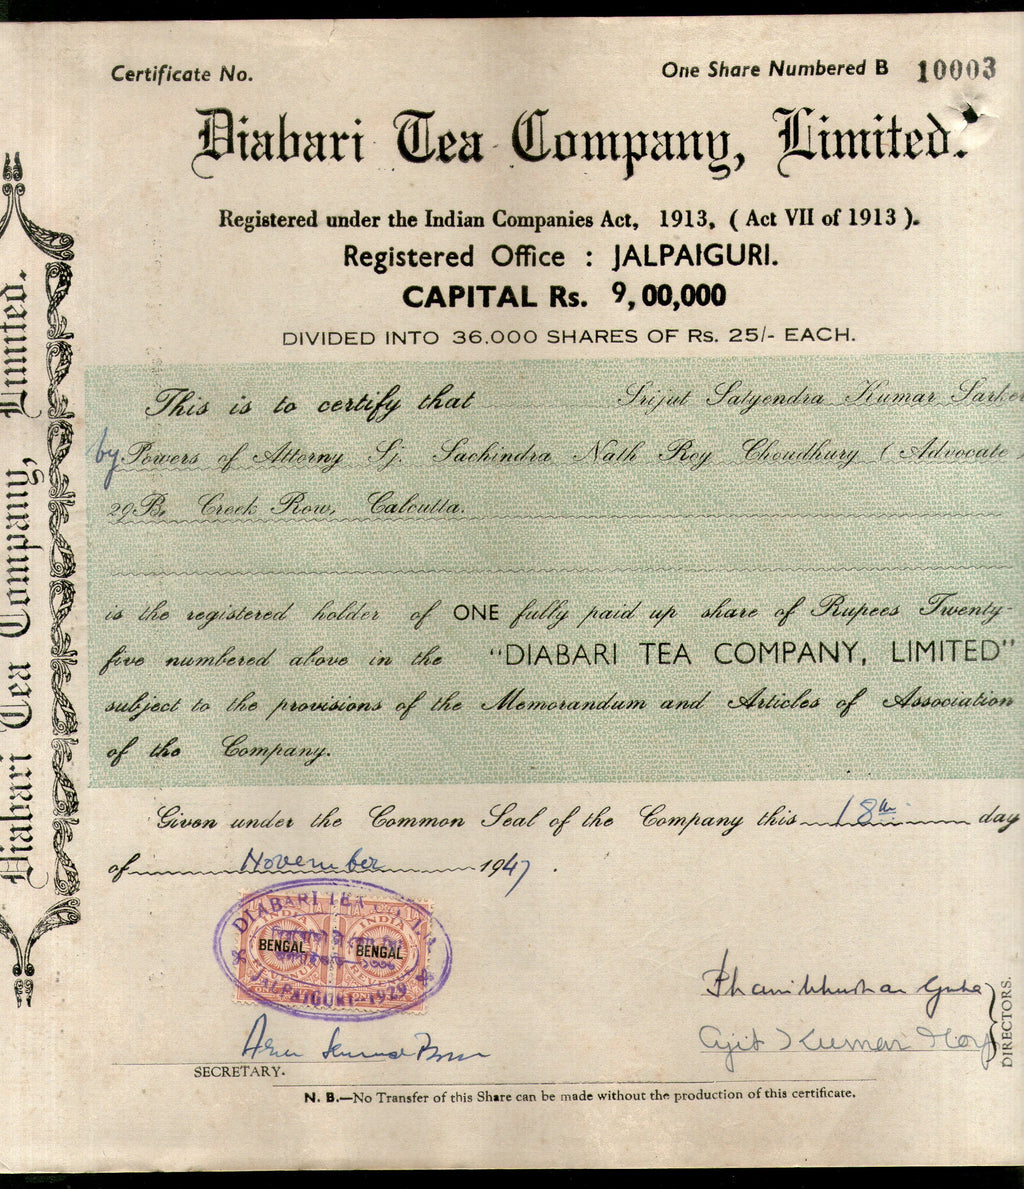 Certificate No.
One Share Numbered B 10003
Diabari Tea Company, Limited.
Registered under the Indian Companies Act, 1913, ( Act VII of 1913 ).
Registered Office : JALPAIGURI.
CAPITAL Rs. 9,00,000
DIVIDED INTO 36,000 SHARES OF Rs. 25/- EACH.
This is to certify that Srijut Satyendra Kumar Sarker
by Powers of Attorny Sj. Sachindra Nath Roy Choudhury ( Advocate )
29B, Creek Row, Calcutta.
is the registered holder of ONE fully paid up share of Rupees Twenty-
five numbered above in the "DIABARI TEA COMPANY, LIMITED"
subject to the provisions of the Memorandum and Articles of Association
of the Company.
Given under the Common Seal of the Company this 18th day
of November 1947.
DIABARI TEA CO. LD.
INDIA INDIA
BENGAL BENGAL
JALPAIGURI 1929
Phanibhushan Guha
Ajit Kumar Hory
DIRECTORS.
SECRETARY.
N. B.—No Transfer of this Share can be made without the production of this certificate.
Diabari Tea Company, Limited.